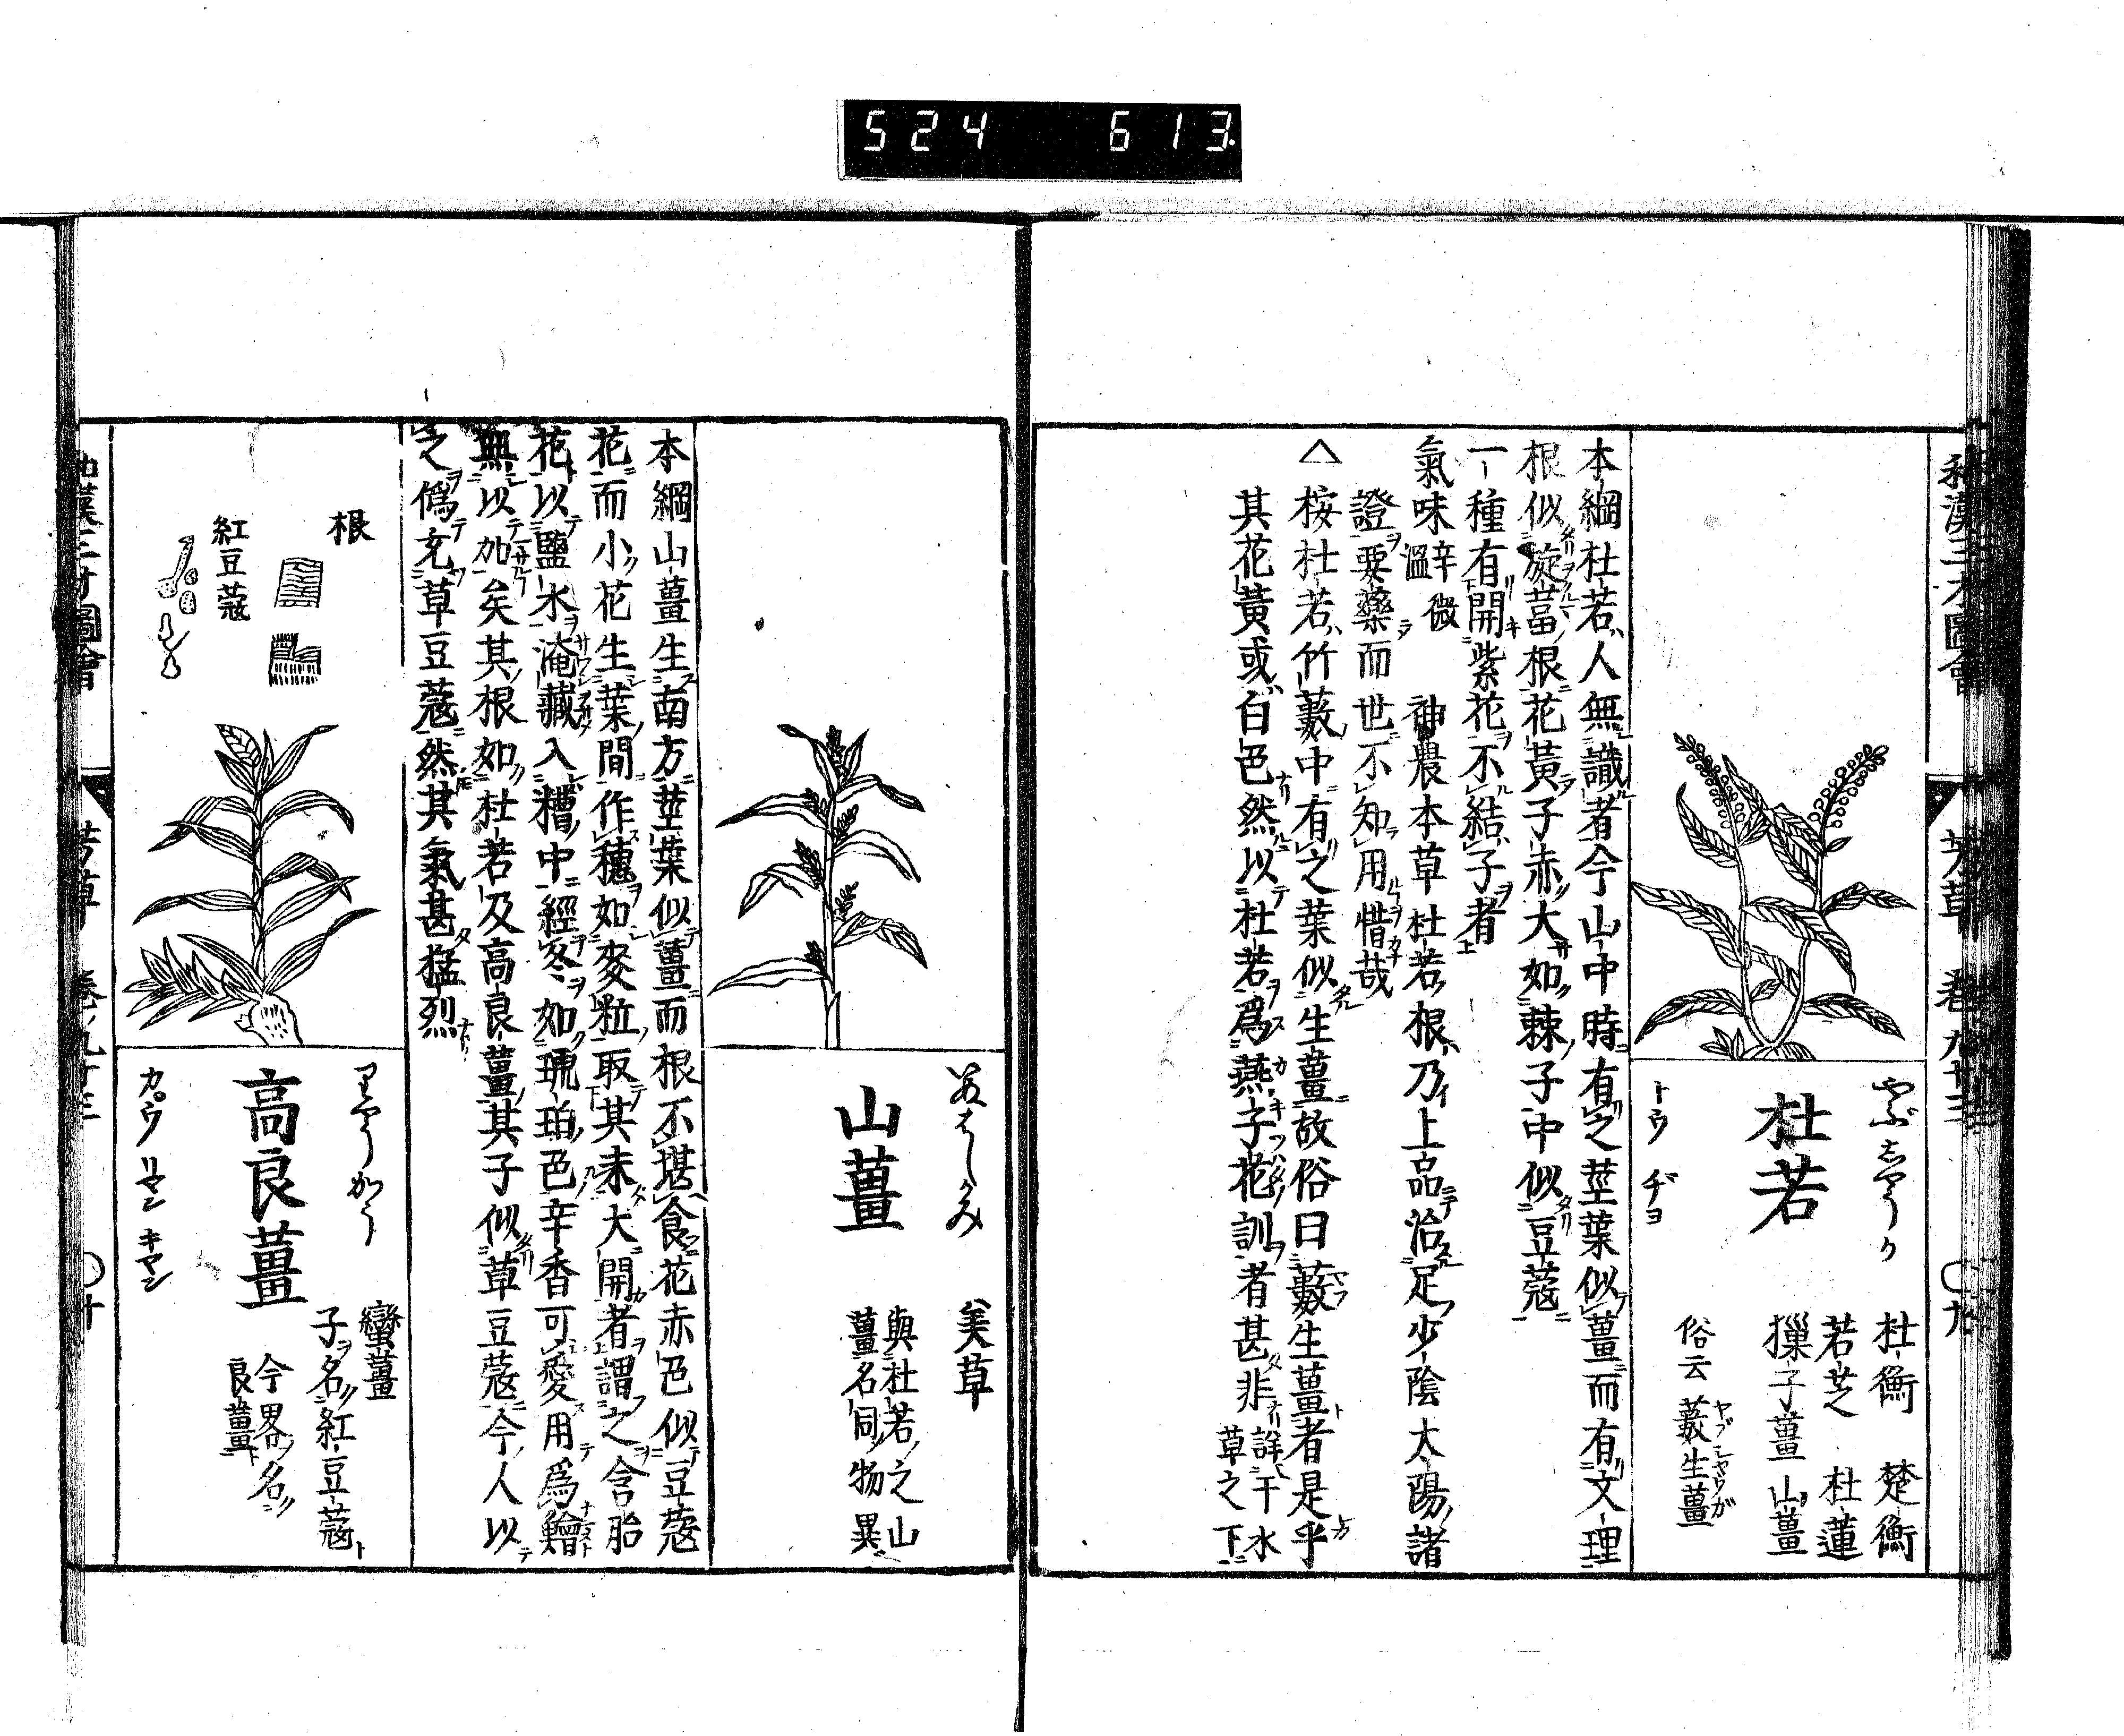 524 613
和漢三才圖會 芳草 卷ノ九十三 〇九
やぶしやうが
杜若
トウ ヂヨ
杜衡 楚衡
若芝 杜蓮
𤢖子薑 山薑
俗云 藪生薑
ヤブシヤウガ
本綱杜若人無識者今山中時有之莖葉似薑而有文理
根似旋葍根花黃子赤大如棘子中似豆蔲
一種有開紫花不結子者
氣味辛微溫 神農本草杜若根乃上品治足少陰太陽諸
證要藥而世不知用惜哉
△桉杜若竹藪中有之葉似生薑故俗曰藪生薑者是乎
其花黃或白色然以杜若爲燕子花訓者甚非詳于水草之下
山薑
美草
與杜若之山
薑名同物異
本綱山薑生南方莖葉似薑而根不堪食花赤色似豆蔲
花而小花生葉間作穗如麥粒取其未大開者謂之含胎
花以鹽水淹藏入糟中經冬如琥珀色辛香可愛用爲鱠
無以加矣其根如杜若及高良薑其子似草豆蔲今人以
之僞充草豆蔲然其氣甚猛烈
根
紅豆蔲
りやうかう
高良薑
カ゜ウ リヤン キヤン
蠻薑
子ヲ名紅豆蔲ト
今畧名
良薑ト
和漢三才圖會 芳草 卷ノ九十三 〇十